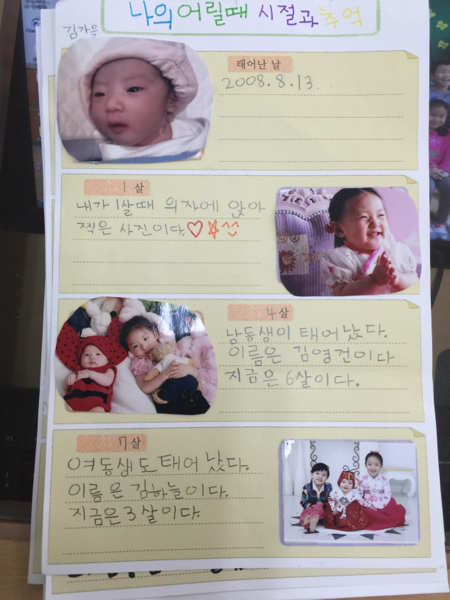 나의 어릴때 시절과 추억
김가을
태어난 날
2008.8.13.
1 살
내가 1살때 의자에 앉아
찍은 사진이다.♡☆^^
4살
남동생이 태어났다.
이름은 김영건이다
지금은 6살이다.
7살
여동생도 태어 났다.
이름은 김하늘이다.
지금은 3살이다.